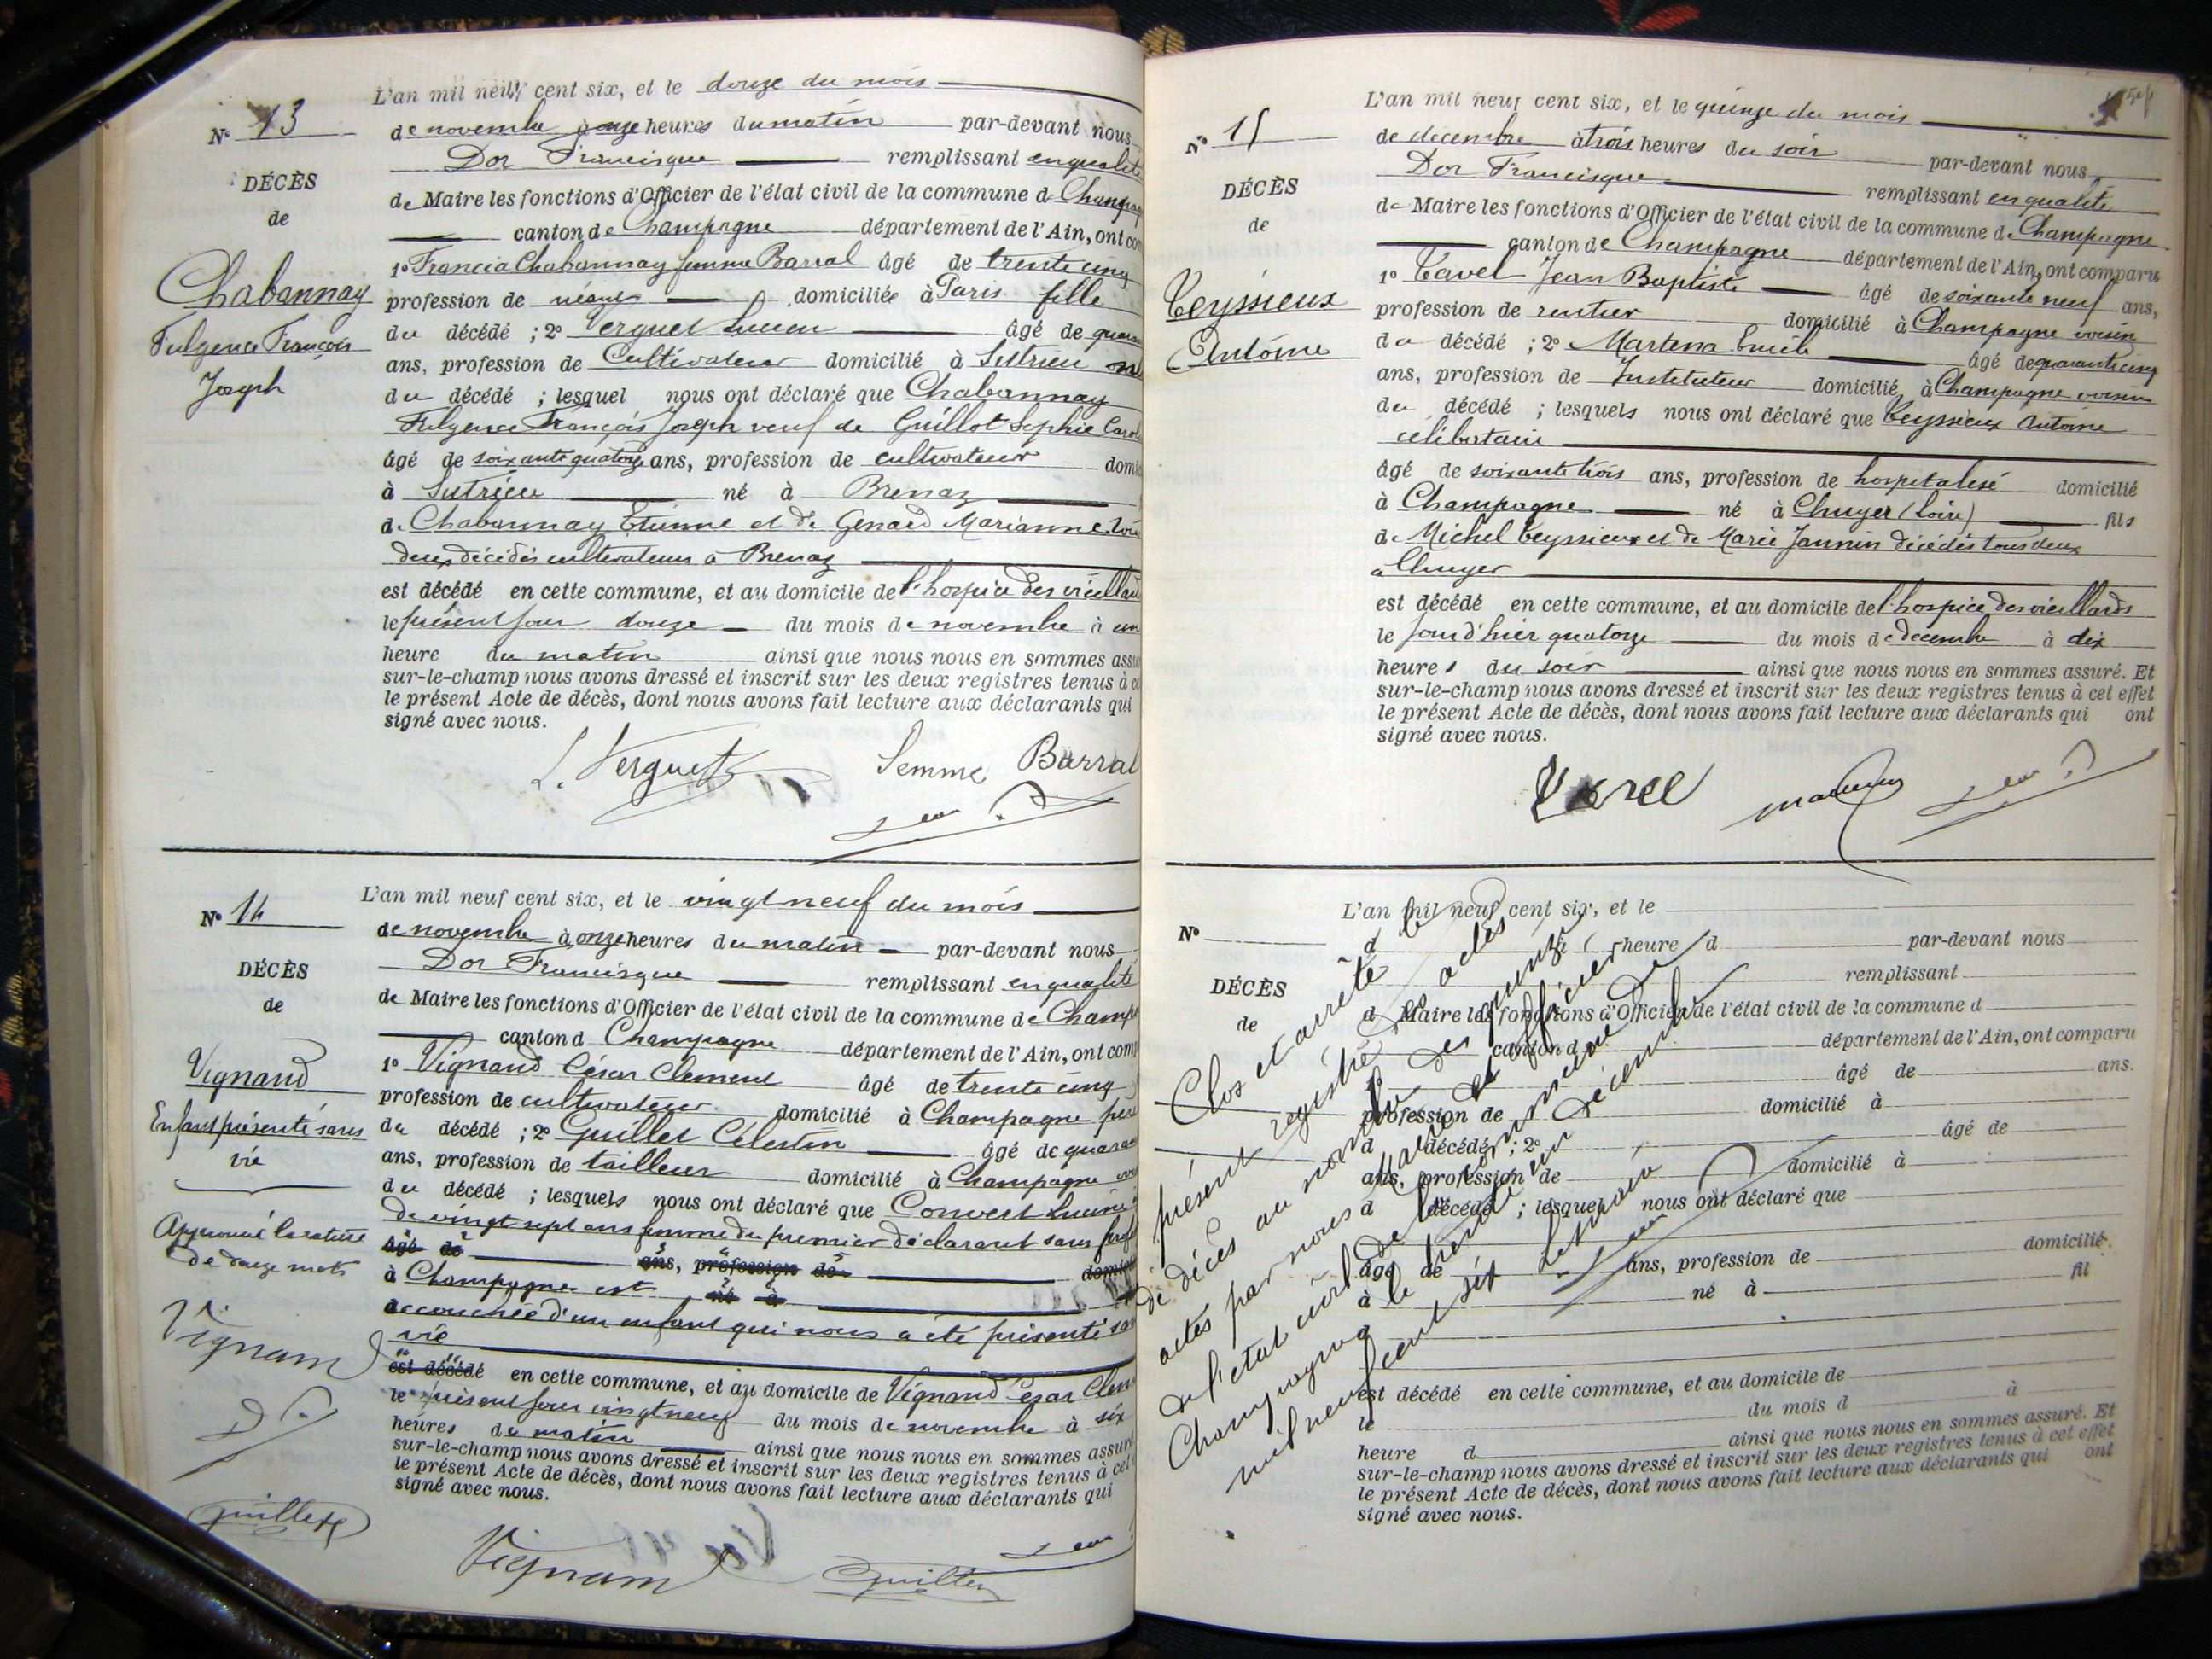 L'an mil neuf cent six, et le douze du mois
No 13
de novembre à onze heures du matin par-devant nous
Dor Francisque remplissant en qualité
DÉCÈS
de Maire les fonctions d'Officier de l'état civil de la commune de
de
canton de Champagne département de l'Ain, ont
1o Francia Chabannay femme Barral âgé de trente cinq
Chabannay
profession de néant domiciliée à Paris fille
Fulgence François
du décédé ; 2o Verguet Lucien âgé de
Joseph
ans, profession de Cultivateur domicilié à Sutrieu
du décédé ; lesquel nous ont déclaré que Chabannay
Fulgence François Joseph veuf de Guillot Sophie
âgé de soixante quatorze ans, profession de cultivateur
à Sutrieu né à Brenaz
de Chabannay Etienne et de Genard Marianne
deux décédés cultivateurs à Brenaz
est décédé en cette commune, et au domicile de l'hospice des
le présent jour douze du mois de novembre à un
heure du matin ainsi que nous nous en sommes
sur-le-champ nous avons dressé et inscrit sur les deux registres tenus à
le présent Acte de décès, dont nous avons fait lecture aux déclarants qui
signé avec nous.
L. Verguet Femme Barral
L'an mil neuf cent six, et le vingt neuf du mois
No 14
de novembre à onze heures du matin par-devant nous
Dor Francisque remplissant en qualité
DÉCÈS
de Maire les fonctions d'Officier de l'état civil de la commune de
de
canton d Champagne département de l'Ain, ont
1o Vignand César Clément âgé de trente cinq
Vignand
profession de cultivateur domicilié à Champagne
Enfant présenté sans
du décédé ; 2o Guillet Célestin âgé de
vie
ans, profession de tailleur domicilié à Champagne
du décédé ; lesquels nous ont déclaré que Convert
de vingt sept ans femme du premier déclarant sans
Approuvé la rature
âgé de ans, profession de
de douze mots
à Champagne est né à
accouchée d'un enfant qui nous a été présenté
vie
Vignand
est décédé en cette commune, et au domicile de Vignand César
le présent jour vingt neuf du mois de novembre à six
heures du matin ainsi que nous nous en sommes assuré
sur-le-champ nous avons dressé et inscrit sur les deux registres tenus à
le présent Acte de décès, dont nous avons fait lecture aux déclarants qui
signé avec nous.
Guillet
Vignand Guillet
L'an mil neuf cent six, et le quinze du mois
No 15
de décembre à trois heures du soir par-devant nous
Dor Francisque remplissant en qualité
DÉCÈS
de Maire les fonctions d'Officier de l'état civil de la commune de Champagne
de
canton de Champagne département de l'Ain, ont comparu
1o Cavel Jean Baptiste âgé de soixante neuf ans,
Teyssieux
profession de rentier domicilié à Champagne voisin
Antoine
du décédé ; 2o Martena Emile âgé de quarante cinq
ans, profession de Instituteur domicilié à Champagne voisin
du décédé ; lesquels nous ont déclaré que Teyssieux Antoine
célibataire
âgé de soixante trois ans, profession de hospitalisé domicilié
à Champagne né à Chuyer (Loire) fils
de Michel Teyssieux et de Marie Jannin décédés tous deux
à Chuyer
est décédé en cette commune, et au domicile de l'hospice des vieillards
le jour d'hier quatorze du mois de décembre à dix
heures du soir ainsi que nous nous en sommes assuré. Et
sur-le-champ nous avons dressé et inscrit sur les deux registres tenus à cet effet
le présent Acte de décès, dont nous avons fait lecture aux déclarants qui ont
signé avec nous.
L'an mil neuf cent six, et le
No
d à heure d par-devant nous
remplissant
DÉCÈS
d Maire les fonctions d'Officier de l'état civil de la commune d
de
canton d département de l'Ain, ont comparu
âgé de ans.
profession de domicilié à
d décédé ; 2o âgé de
ans, profession de domicilié à
d décédé ; lesquel nous ont déclaré que
âgé de ans, profession de domicilié
à né à fil
d
est décédé en cette commune, et au domicile de
le du mois d à
heure d ainsi que nous nous en sommes assuré. Et
sur-le-champ nous avons dressé et inscrit sur les deux registres tenus à cet effet
le présent Acte de décès, dont nous avons fait lecture aux déclarants qui ont
signé avec nous.
Clos et arrêté le
présent registre des actes
de décès au nombre de quinze
actes par nous Maire et officier
de l'état civil de la commune de
Champagne le trente un décembre
mil neuf cent six